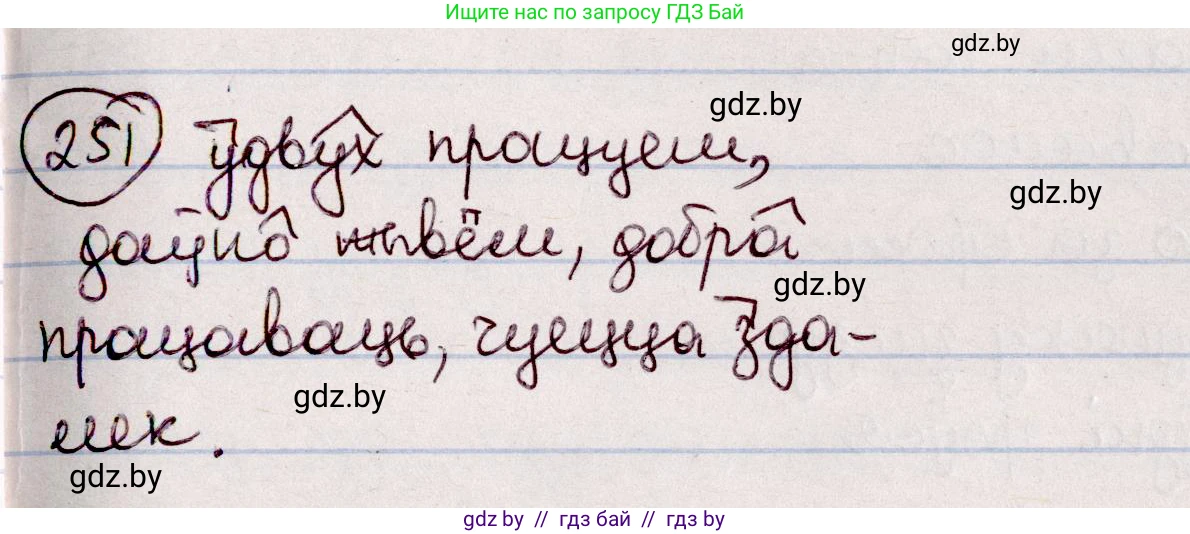 Ищите нас по запросу ГДЗ Бай
gdz.by
gdz.by
251 ўдвух працуем,
gdz.by
даўно жывём, добра
gdz.by
працаваць, чуецца зда-
gdz.by
лек.
gdz.by
gdz by // гдз бай // гдз by